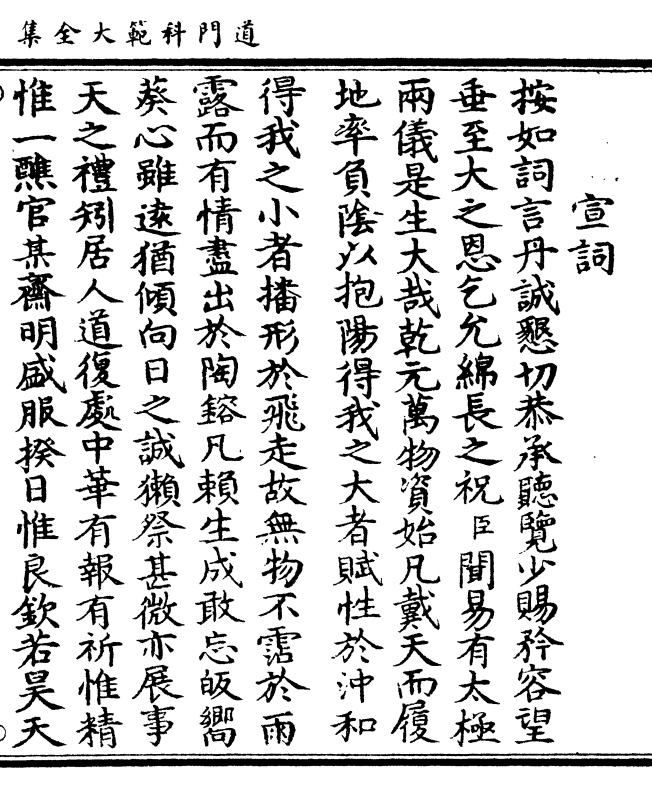 道門科範大全集
宣詞
按如詞言丹誠懇切恭承聽覽少賜矜容望
垂至大之恩乞允綿長之祝臣聞易有太極
兩儀是生大哉乾元萬物資始凡戴天而履
地率負陰以抱陽得我之大者賦性於沖和
得我之小者播形於飛走故無物不霑於雨
露而有情盡出於陶鎔凡賴生成敢忘皈嚮
葵心雖遠猶傾向日之誠獺祭甚微亦展事
天之禮矧居人道復處中華有報有祈惟精
惟一醮官某齋明盛服揆日惟良欽若昊天